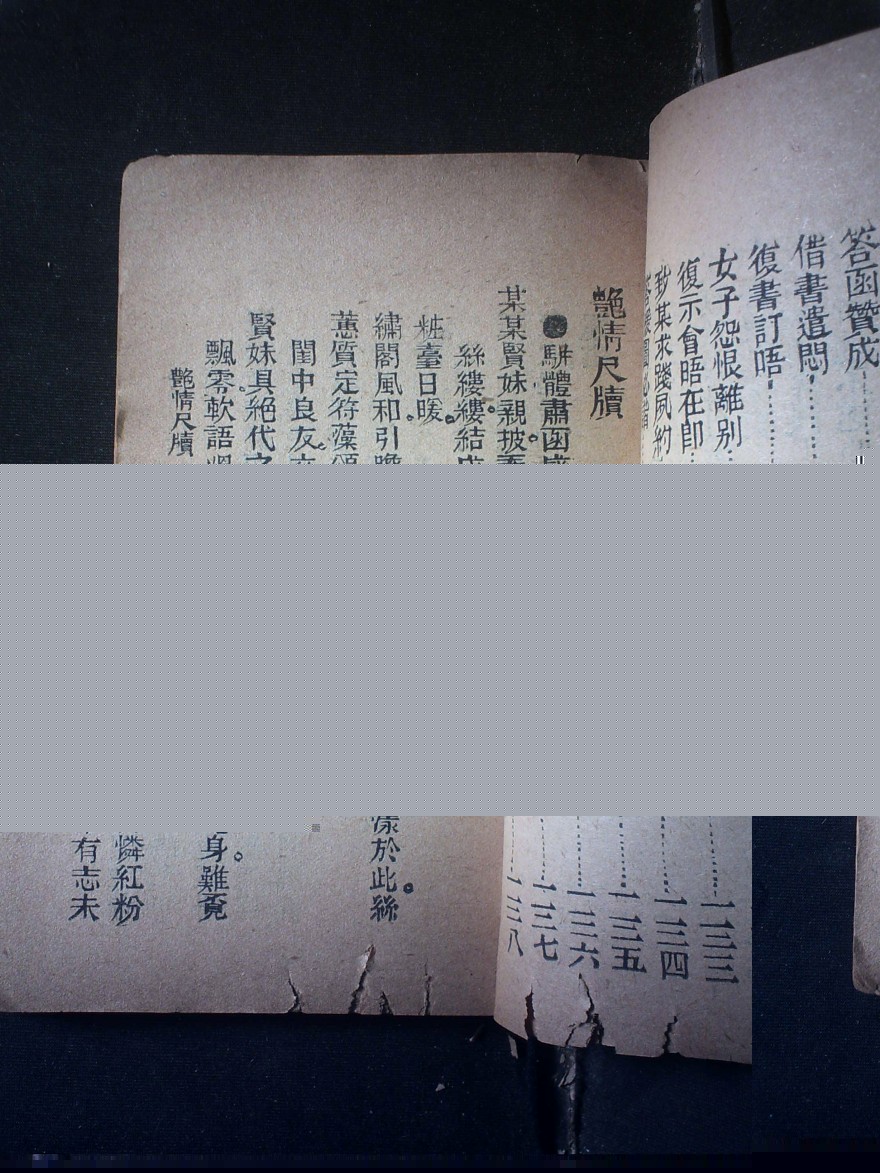 答函贊成
借書遣悶
復書訂唔
女子怨恨離别
復示會晤在即
抄某求踐夙約
一三三
一三四
一三五
一三六
一三七
一三八
艶情尺牘
●駢體肅函
某某賢妹親披
絲縷縷結
粧臺日暖。
繡閣風和。引
蕙質定符藻
閨中良友。
賢妹具絕代之
飄零。軟語
艷情尺牘
於此。絲
身難覓
憐紅粉
有志未